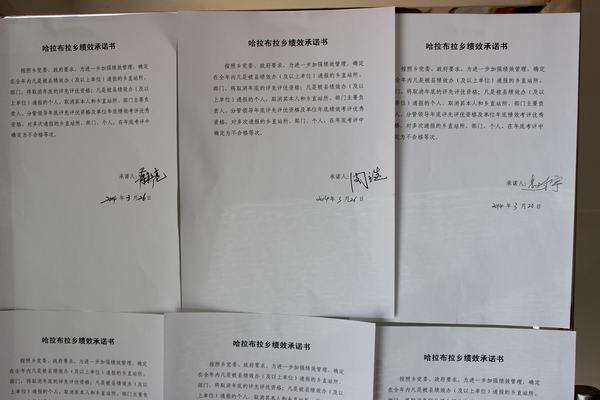 哈拉布拉乡绩效承诺书
按照乡党委、政府要求，为进一步加强绩效管理，确定
在全年内凡是被县绩效办（及以上单位）通报的乡直站所、
部门，将取消年底的评先评优资格；凡是被县绩效办（及以
上单位）通报的个人，取消其本人和乡直站所、部门主要负
责人、分管领导年底的评先评优资格及单位年底绩效考评优秀
资格。对多次通报的乡直站所、部门、个人，在年底考评中
确定为不合格等次。
承诺人：
2014 年 3 月 26 日
哈拉布拉乡绩效承诺书
按照乡党委、政府要求，为进一步加强绩效管理，确定
在全年内凡是被县绩效办（及以上单位）通报的乡直站所、
部门，将取消年底的评先评优资格；凡是被县绩效办（及以
上单位）通报的个人，取消其本人和乡直站所、部门主要负
责人、分管领导年底的评先评优资格及单位年底绩效考评优秀
资格。对多次通报的乡直站所、部门、个人，在年底考评中
确定为不合格等次。
承诺人：
2014 年 3 月 26 日
哈拉布拉乡绩效承诺书
按照乡党委、政府要求，为进一步加强绩效管理，确定
在全年内凡是被县绩效办（及以上单位）通报的乡直站所、
部门，将取消年底的评先评优资格；凡是被县绩效办（及以
上单位）通报的个人，取消其本人和乡直站所、部门主要负
责人、分管领导年底的评先评优资格及单位年底绩效考评优秀
资格。对多次通报的乡直站所、部门、个人，在年底考评中
确定为不合格等次。
承诺人：
2014 年 3 月 26 日
哈拉布拉乡绩效承诺书
按照乡党委、政府要求，为进一步加强绩效管理，确定
在全年内凡是被县绩效办（及以上单位）通报的乡直站所、
部门，将取消年底的评先评优资格；凡是被县绩效办（及以
哈拉布拉乡绩效承诺书
按照乡党委、政府要求，为进一步加强绩效管理，确定
在全年内凡是被县绩效办（及以上单位）通报的乡直站所、
部门，将取消年底的评先评优资格；凡是被县绩效办（及以
哈拉布拉乡绩效承诺书
按照乡党委、政府要求，为进一步加强绩效管理，确定
在全年内凡是被县绩效办（及以上单位）通报的乡直站所、